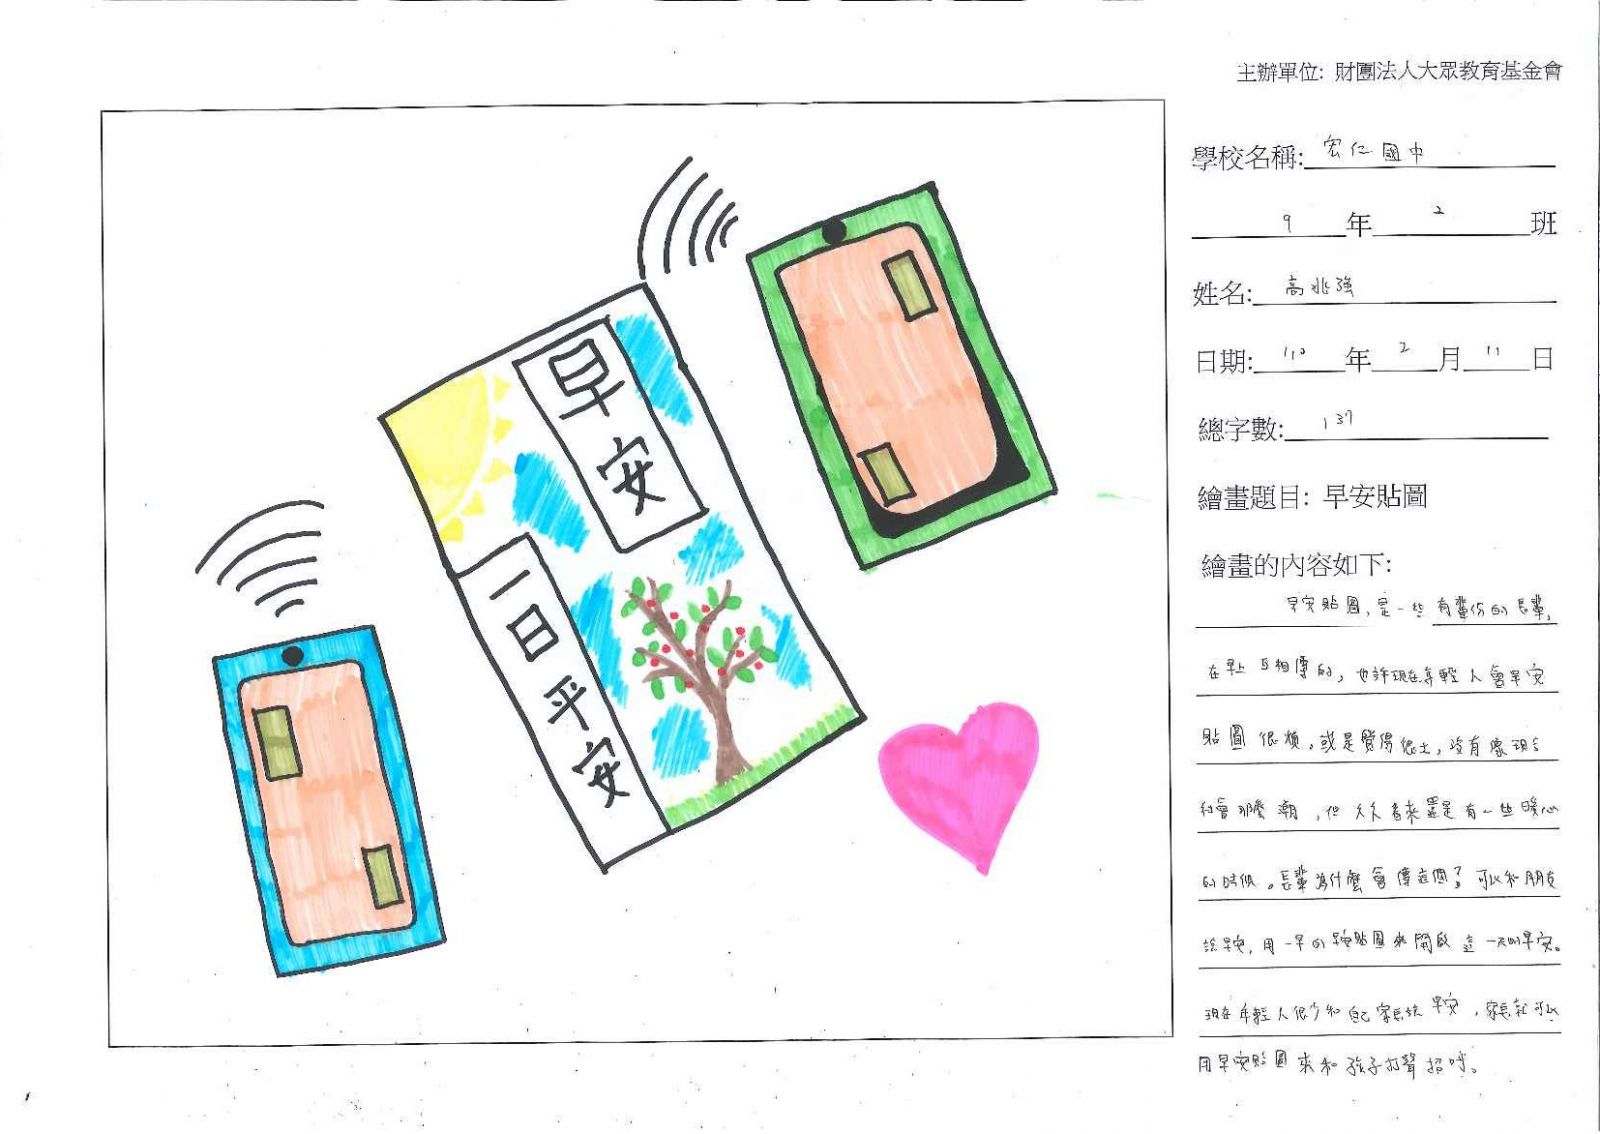 主辦單位: 財團法人大眾教育基金會
學校名稱: 宏仁國中
9 年 2 班
姓名: 高兆強
日期: 110 年 2 月 11 日
總字數: 137
繪畫題目: 早安貼圖
繪畫的內容如下:
早安貼圖，是一些有輩份的長輩，
在早上互相傳的，也許現在年輕人會早安
貼圖很煩，或是覺得很土，沒有像現今
社會那麼潮，但久久看來還是有一些暖心
的時候。長輩為什麼會傳這個？可以和朋友
說早安，用一早的早安貼圖來開啟這一天的早安。
現在年輕人很少和自己家長說早安，家長就可以
用早安貼圖來和孩子打聲招呼。
早安
一日平安